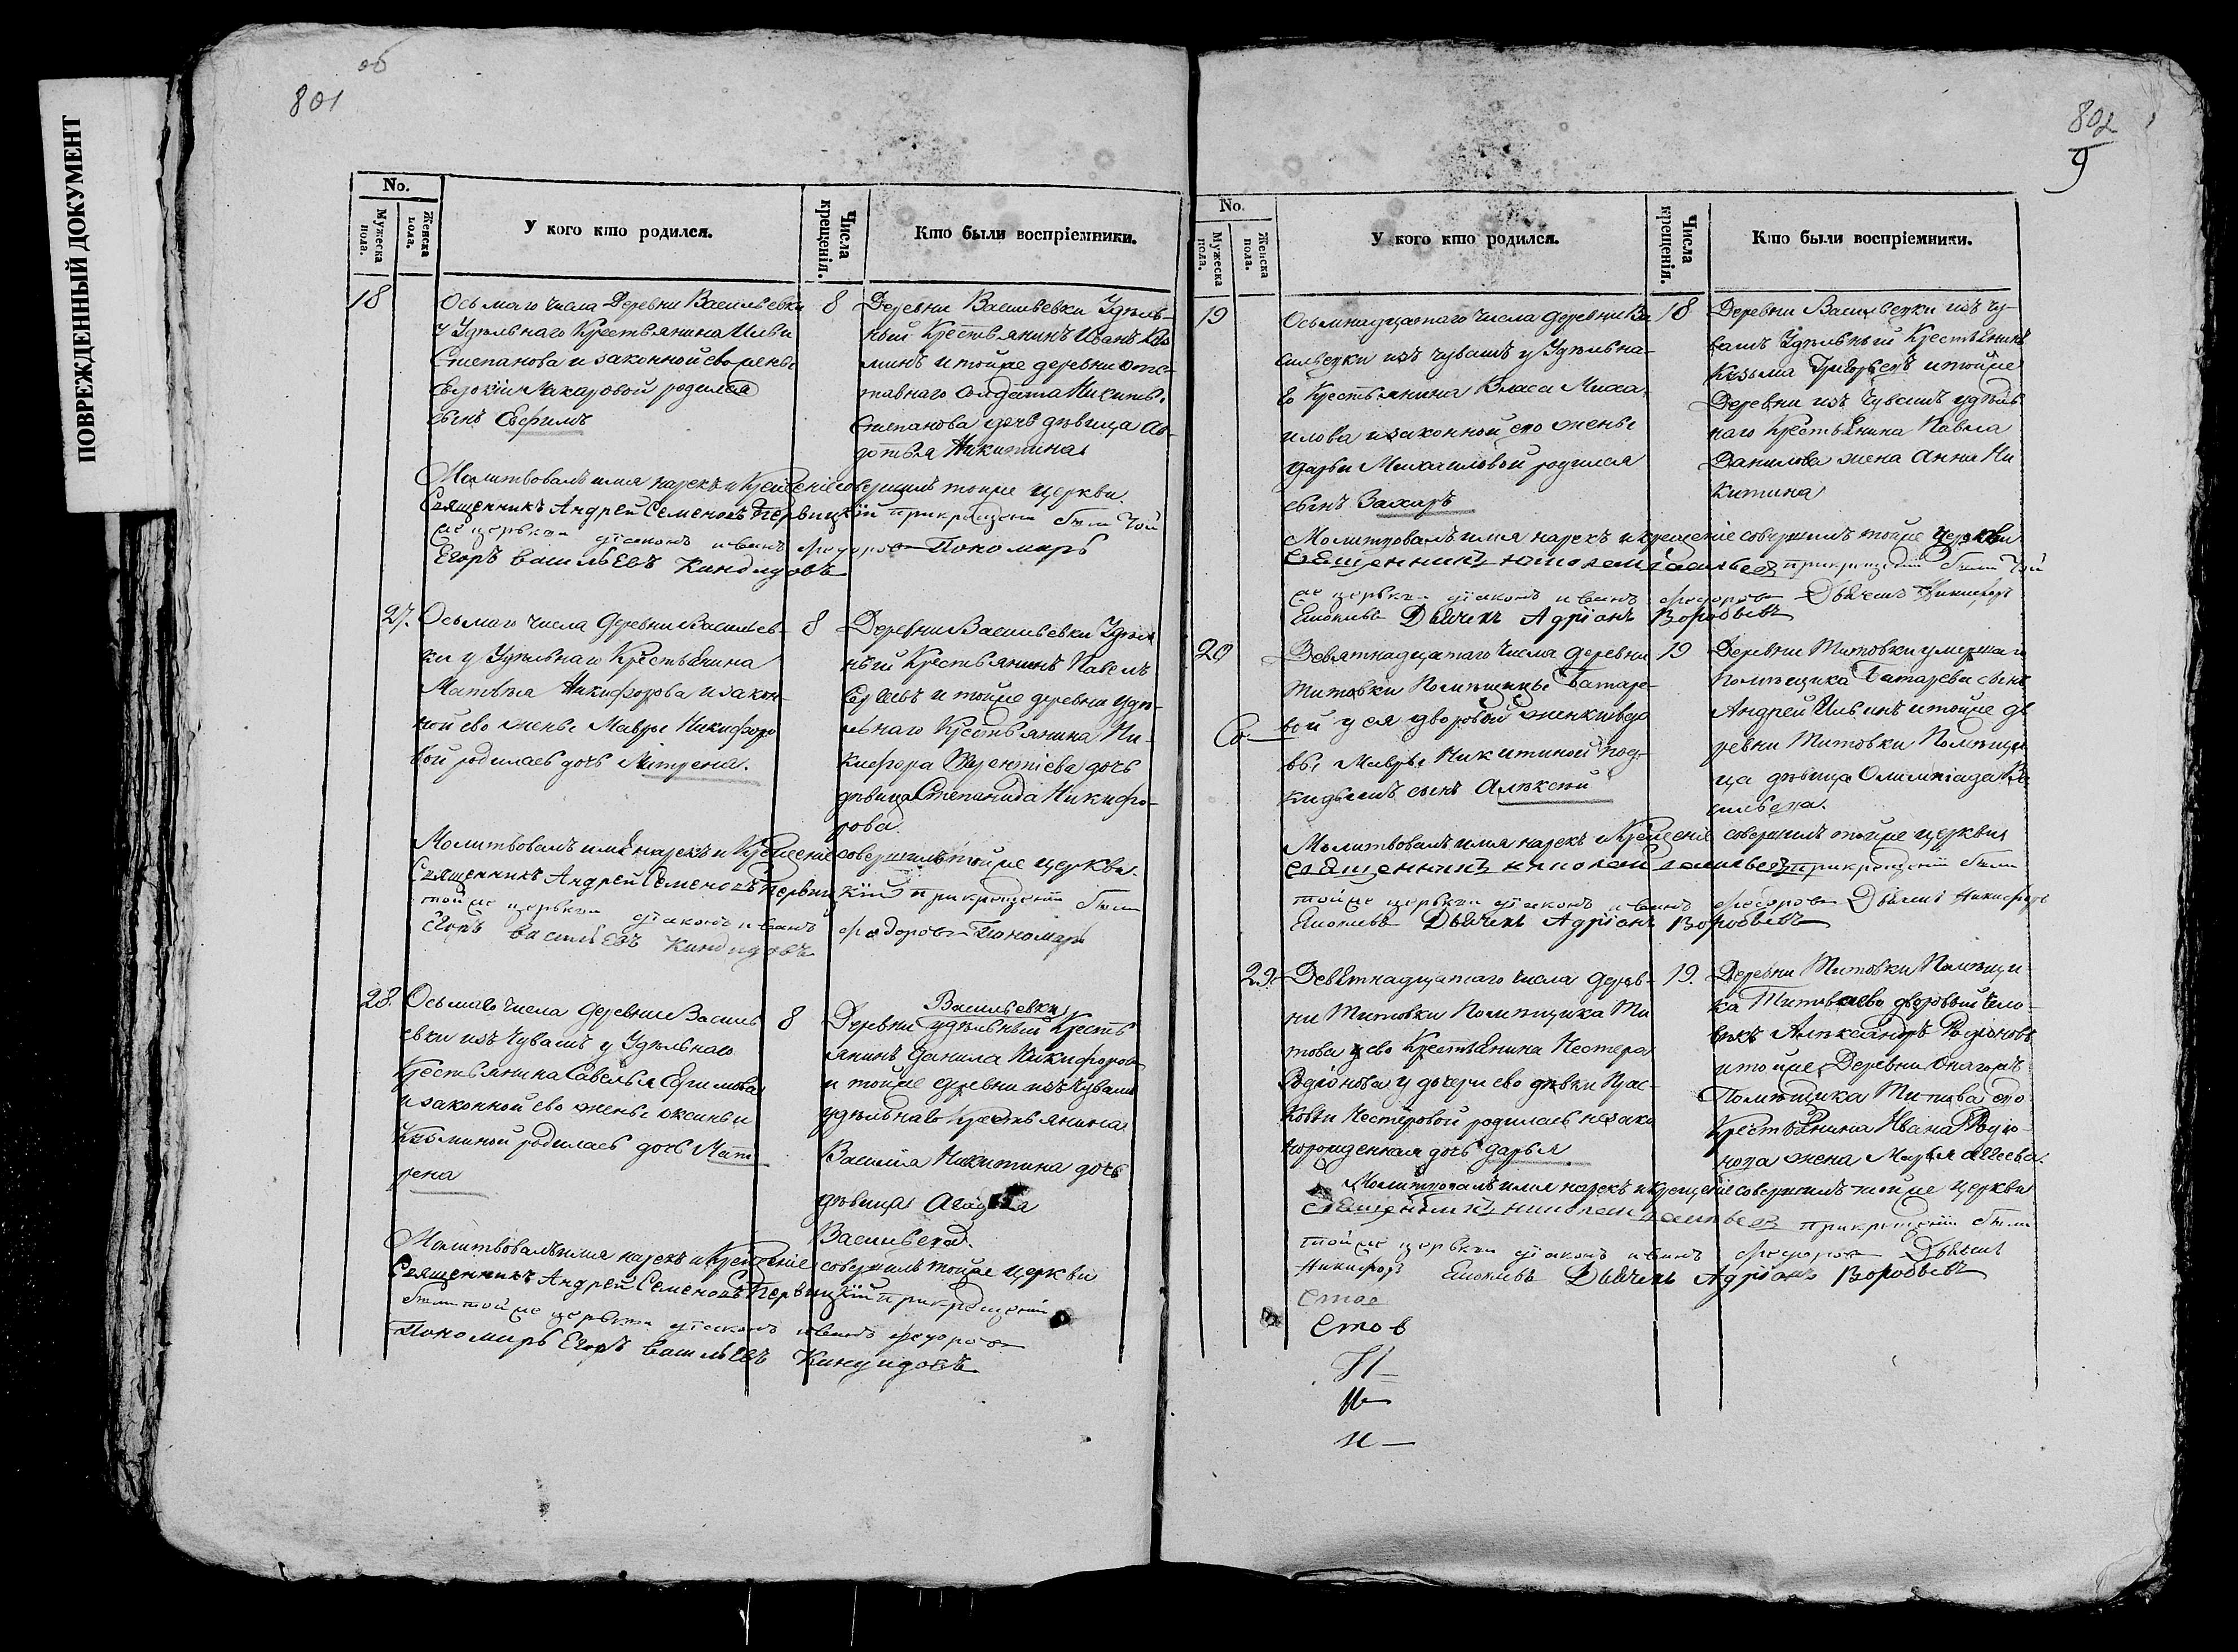 ПОВРЕЖДЕННЫЙ ДОКУМЕНТ
об
801
No.
Мужеска пола.
Женска пола.
У кого кто родился.
Числа крещенія.
Кто были воспріемники.
18
Осьмаго числа Деревни Васильевки
у Удѣльнаго Крестьянина Ильи
Степанова и законной ево жены
Евдокіи Макаровой родился
сынъ Ефимъ
8
Деревни Васильевки Удѣль-
ный Крестьянинъ Иванъ
минъ и тойже деревни отс-
тавнаго солдата Никиты
Степанова дочь дѣвица Ав-
дотья Никитина
Молитвовалъ имя нарекъ и Крещеніе совершилъ тойже церкви
Священникъ Андрей Семеновъ Первицкій при крещеніи были той
же церкви діаконъ иванъ федоровъ Пономарь
Егоръ васильЕвъ Киндидовъ
27.
Осьмаго числа Деревни Васильев-
ки у Удѣльнаго Крестьянина
Матвѣя Никифорова и закон-
ной ево жены Мавры Никифоро
вой родилась дочь Матрена.
8
Деревни Васильевки Удѣл
ный Крестьянинъ Павелъ
и тойже деревни удѣ-
льнаго Крестьянина Ни-
кифора дочь
дѣвица Степанида Никифо-
рова.
Молитвовалъ имя нарекъ и Крещеніе совершилъ тойже церкви.
Священникъ Андрей Семеновъ Первицкій при крещеніи были
тойже церкви діаконъ иванъ федоровъ Пономарь
Егоръ васильЕвъ Киндидовъ
28.
Осьмаго числа деревни Василь
евки изъ Чувашъ у Удѣльнаго
Крестьянина Савелья Ефимова
и законной ево жены аксиньи
Кузминой родилась дочь Мат
рена
8
Васильевки
Деревни удѣльный Кресть
янинъ Данила Никифоровъ
и тойже деревни изъ Чувашъ
удѣльнаго Крестьянина
Василія Никитина дочь
дѣвица
Васильева.
Молитвовалъ имя нарекъ и Крещеніе совершилъ тойже церкви
Священникъ Андрей Семеновъ Первицкій при крещеніи
были тойже церкви діаконъ иванъ федоровъ
Пономарь Егоръ васильЕвъ Киндидовъ
802
9
No.
Мужеска пола.
Женска пола.
У кого кто родился.
Числа крещенія.
Кто были воспріемники.
19
Осьмнадцатаго числа деревни Ва
сильевки изъ чувашъ у Удѣльна-
го Крестьянина Власа Миха
илова и законной его жены
Дарьи Михаиловой родился
сынъ Захаръ
18
Деревни Васильевки изъ Чу-
вашъ Удѣльный Крестьянинъ
Кузьма Григорьевъ и тойже
Деревни изъ Чувашъ удѣль
наго Крестьянина Павла
Данилова жена Анна Ни
китина
Молитвовалъ имя нарекъ и крещеніе совершилъ тойже церкви
священникъ николай васильевъ при крещеніи были той
же церкви діаконъ иванъ федоровъ Дьячекъ Никифоръ
Дьячекъ Адріанъ Воробьевъ
20
Девятнадцатаго числа деревни
Титовки Помѣщицы Батаре-
вой у ея дворовой женки вдо
вы Мавры Никитиной под-
кидышъ сынъ Алѣксѣй
19
Деревни Титовки умершаго
Помѣщика Батарева сынъ
Андрей Ильинъ и тойже де
ревни Титовки Помѣщи
ца дѣвица Олимпіада Ва
сильевна.
Молитвовалъ имя нарекъ и Крещеніе совершилъ тойже церкви
священникъ николай васильевъ при крещеніи были
тойже церкви діаконъ иванъ федоровъ Дьячекъ Никифоръ
Дьячекъ Адріанъ Воробьевъ
29.
Девятнадцатаго числа дерев-
ни Титовки Помѣщика Ти
това у ево Крестьянина Нестера
Родіонова у дочери ево дѣвки Прас-
ковьи Нестеровой родилась незако
норожденная дочь Дарья
19.
Деревни Титовки Помѣщи-
ка Титова ево дворовый чело-
вѣкъ Алѣксандръ Родіоновъ
и тойже Деревни онагожъ
Помѣщика Титова его
Крестьянина Ивана Родіо-
нова жена Марья
Молитвовалъ имя нарекъ и крещеніе совершилъ тойже церкви
священникъ николай васильевъ при крещеніи были
тойже церкви діаконъ иванъ федоровъ Дьячекъ
Никифоръ Дьячекъ Адріанъ Воробьевъ